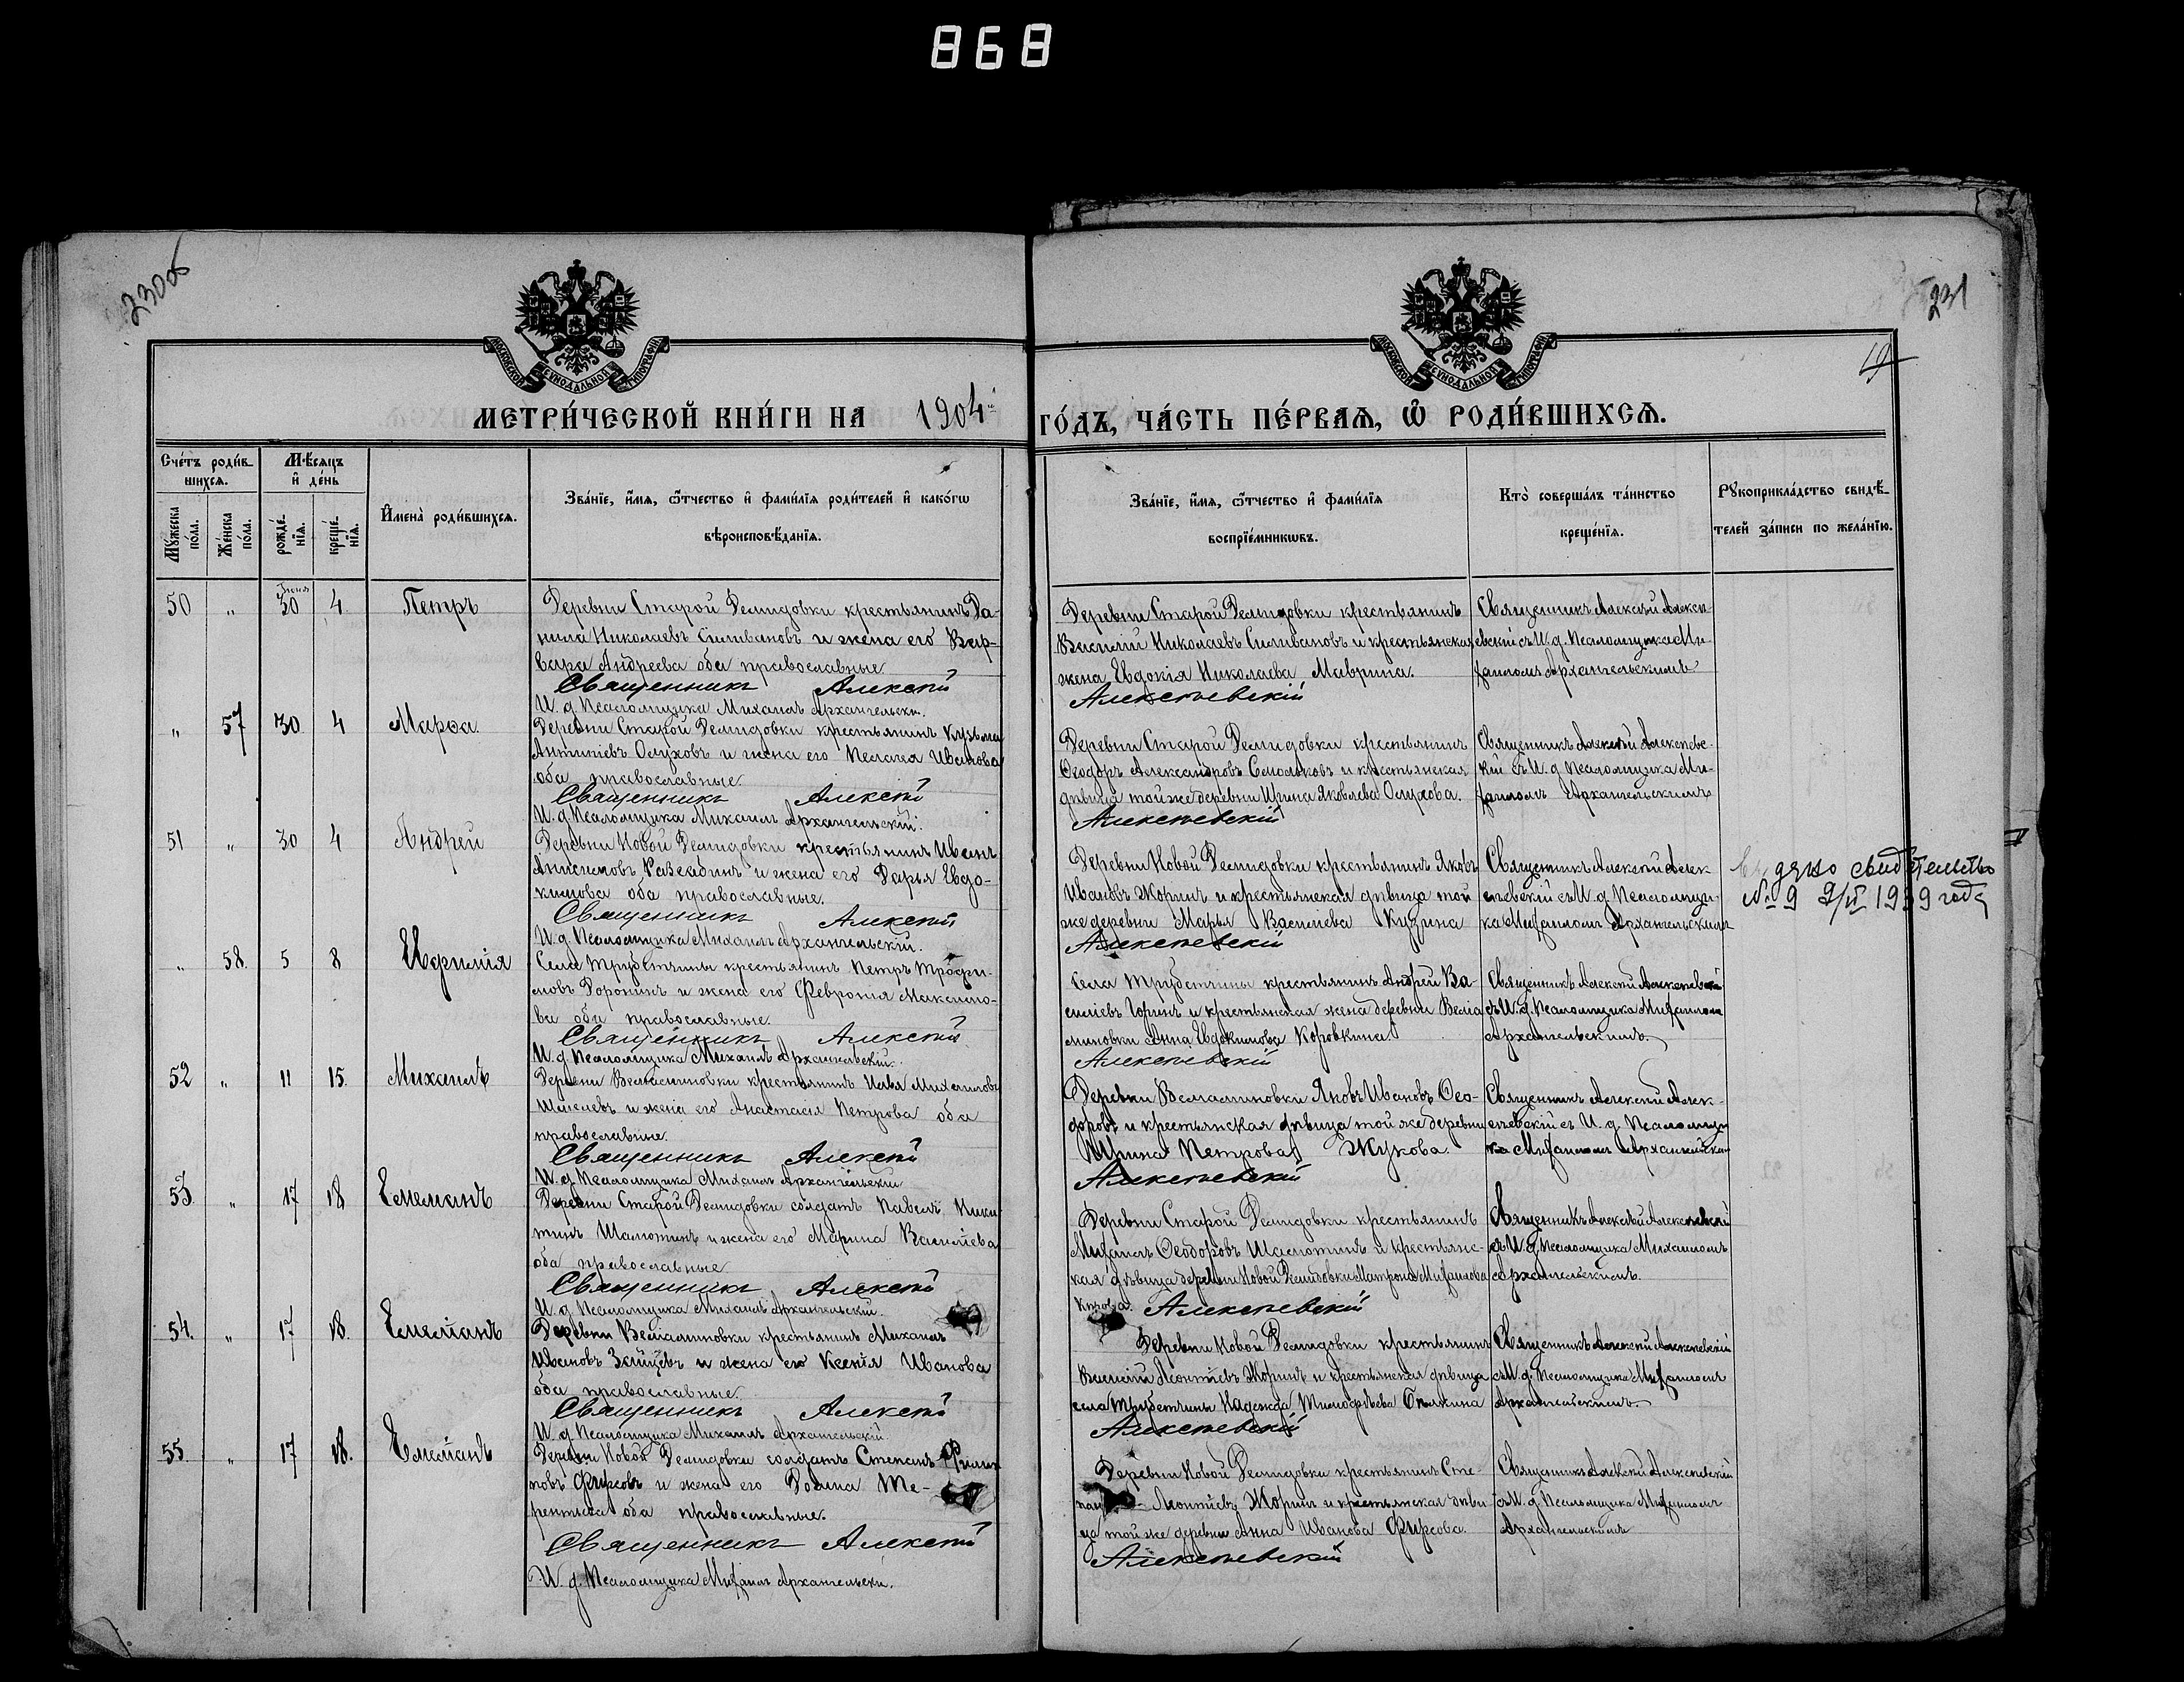 868
230об
231
19
МЕТРИ́ЧЕСКОЙ КНИ́ГИ НА 1904й ГО́ДЪ, ЧА́СТЬ ПЕ́РВАѦ, Ѽ РОДИ́ВШИХСѦ.
Сче́тъ роди́вшихсѧ.
Мѣ́сѧцъ и҆ де́нь
Мꙋ́жеска по́ла.
Же́нска по́ла.
рожде́нїѧ.
креще́нїѧ.
И҆мена̀ роди́вшихсѧ.
Зва́нїе, и҆́мѧ, ѻ҆́тчество и҆ фами́лїѧ роди́телей и҆ како́гѡ
вѣроисповѣ́данїѧ.
Зва́нїе, и҆́мѧ, ѻ҆́тчество и҆ фами́лїѧ
воспрїе́мникѡвъ.
Кто̀ соверша́лъ та́инство
креще́нїѧ.
Рꙋкоприкла́дство свидѣ́-
телей за́писи по жела́нїю.
50 " Іюня 30 4 Петръ
Деревни Старой Демидовки крестьянинъ Да-
нила Николаевъ Силивановъ и жена его Вар-
вара Андреева оба православные.
Священникъ Алексѣй Алексѣевскій
И. д. Псаломщика Михаилъ Архангельскій.
Деревни Старой Демидовки крестьянинъ
Василій Николаевъ Силивановъ и крестьянская
жена Евдокія Николаева Маврина.
Священникъ Алексѣй Алексѣ-
евскій съ И. д. Псаломщика Ми-
хаиломъ Архангельскимъ
" 57 30 4 Марѳа
Деревни Старой Демидовки крестьянинъ Кузьма
Антипіевъ Ослуховъ и жена его Пелагея Иванова
оба православные.
Священникъ Алексѣй Алексѣевскій
И. д. Псаломщика Михаилъ Архангельскій.
Деревни Старой Демидовки крестьянинъ
Ѳеодоръ Александровъ Смольковъ и крестьянская
дѣвица той же деревни Ирина Яковлева Ослухова.
Священникъ Алексѣй Алексѣевс-
кій съ И. д. Псаломщика Ми-
хаиломъ Архангельскимъ
51 " 30 4 Андрей
Деревни Новой Демидовки крестьянинъ Иванъ
Анисимовъ и жена его Дарья Евдо-
кимова оба православные.
Священникъ Алексѣй Алексѣевскій
И. д. Псаломщика Михаилъ Архангельскій.
Деревни Новой Демидовки крестьянинъ Яковъ
Ивановъ Жоринъ и крестьянская дѣвица той
же деревни Марья Васильева Кузина
Священникъ Алексѣй Алек-
сѣевскій съ И. д. Псаломщи-
ка Михаиломъ Архангельскимъ
дано свидѣтельство
№ 9 года
" 58. 5 8 Евфимія
Села Трубетчины крестьянинъ Петръ Трофи-
мовъ Доронинъ и жена его Февронія Максимо-
ва оба православные.
Священникъ Алексѣй Алексѣевскій
И. д. Псаломщика Михаилъ Архангельскій.
Села Трубетчины крестьянинъ Андрей Ва-
сильевъ Горинъ и крестьянская жена деревни Велiа-
миновки Анна Евдокимова Коровкина
Священникъ Алексѣй Алексѣевскій
съ И. д. Псаломщика Михаиломъ
Архангельскимъ.
52 " 11 15. Михаилъ
Деревни Веліаминовки крестьянинъ Илья Михаиловъ
Шмелевъ и жена его Анастасія Петрова оба
православные.
Священникъ Алексѣй Алексѣевскій
И. д. Псаломщика Михаилъ Архангельскій
Деревни Веліаминовки Яковъ Ивановъ Ѳео-
доровъ и крестьянская дѣвица той же деревни
Ирина Петрова Жукова.
Священникъ Алексѣй Алек-
сѣевскій съ И. д. Псаломщи-
ка Михаиломъ Архангельским
53. " 17 18 Емеліанъ
Деревни Старой Демидовки солдатъ Павелъ Ники-
тинъ Шамотинъ и жена его Марина Васильева
оба православные
Священникъ Алексѣй Алексѣевскій
И. д. Псаломщика Михаилъ Архангельскій.
Деревни Старой Демидовки крестьянинъ
Михаилъ Ѳеодоровъ Шамотинъ и крестьянс-
кая дѣвица деревни Новой Демидовки Матрона Михаилова
Священникъ Алексѣй Алексѣевскій
съ И. д. Псаломщика Михаиломъ
Архангельскимъ.
54. " 17 18. Емеліанъ
Деревни Веліаминовки крестьянинъ Михаилъ
Ивановъ Зайцевъ и жена его Ксенія Иванова
оба православные.
Священникъ Алексѣй Алексѣевскій
И. д. Псаломщика Михаилъ Архангельскій.
Деревни Новой Демидовки крестьянинъ
Василій Леонтіевъ Жоринъ и крестьянская дѣвица
села Трубетчины Надежда Тимоѳеева
Священникъ Алексѣй Алексѣевскій
съ И. д. Псаломщика Михаиломъ
Архангельскимъ.
55 " 17 18. Емеліанъ
Деревни Новой Демидовки солдатъ Степанъ Филип-
повъ Фирсовъ и жена его Домна Те-
рентьева оба православные.
Священникъ Алексѣй Алексѣевскій
И. д. Псаломщика Михаилъ Архангельскій.
Деревни Новой Демидовки крестьянинъ Сте-
панъ Леонтіевъ Жоринъ и крестьянская дѣви-
ца той же деревни Анна Иванова Фирсова.
Священникъ Алексѣй Алексѣевскій
съ И. д. Псаломщика Михаиломъ
Архангельскимъ